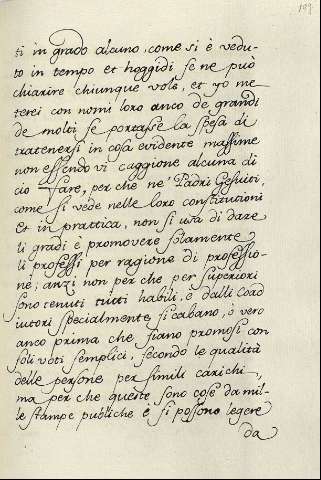 ti in grado alcuno, come si è vedu-
to in tempo et hoggidi se ne può
chiarire chiunque vole, et yo me
terei con nomi loro anco de grandi
de molti se portasse la spesa di
tratenersi in cosa evidente massime
non essendo vi caggione alcuna di
cio fare, per che ne' Padri Gesuiti,
come si vede nelle loro constitutioni
et in prattica, non si usa di dare
li gradi è promovere solamente
li professi per ragione di professio-
ne; anzi non per che per superiori
sono tenuti tutti habili, e dalli Coad
iutori specialmente si cabano, o vero
anco prima che siano promosi con
soli voti semplici, secondo le qualità
delle persone per simili carichi –,
ma per che queste sono cose da mil-
le stampe publiche è si possono legere
da